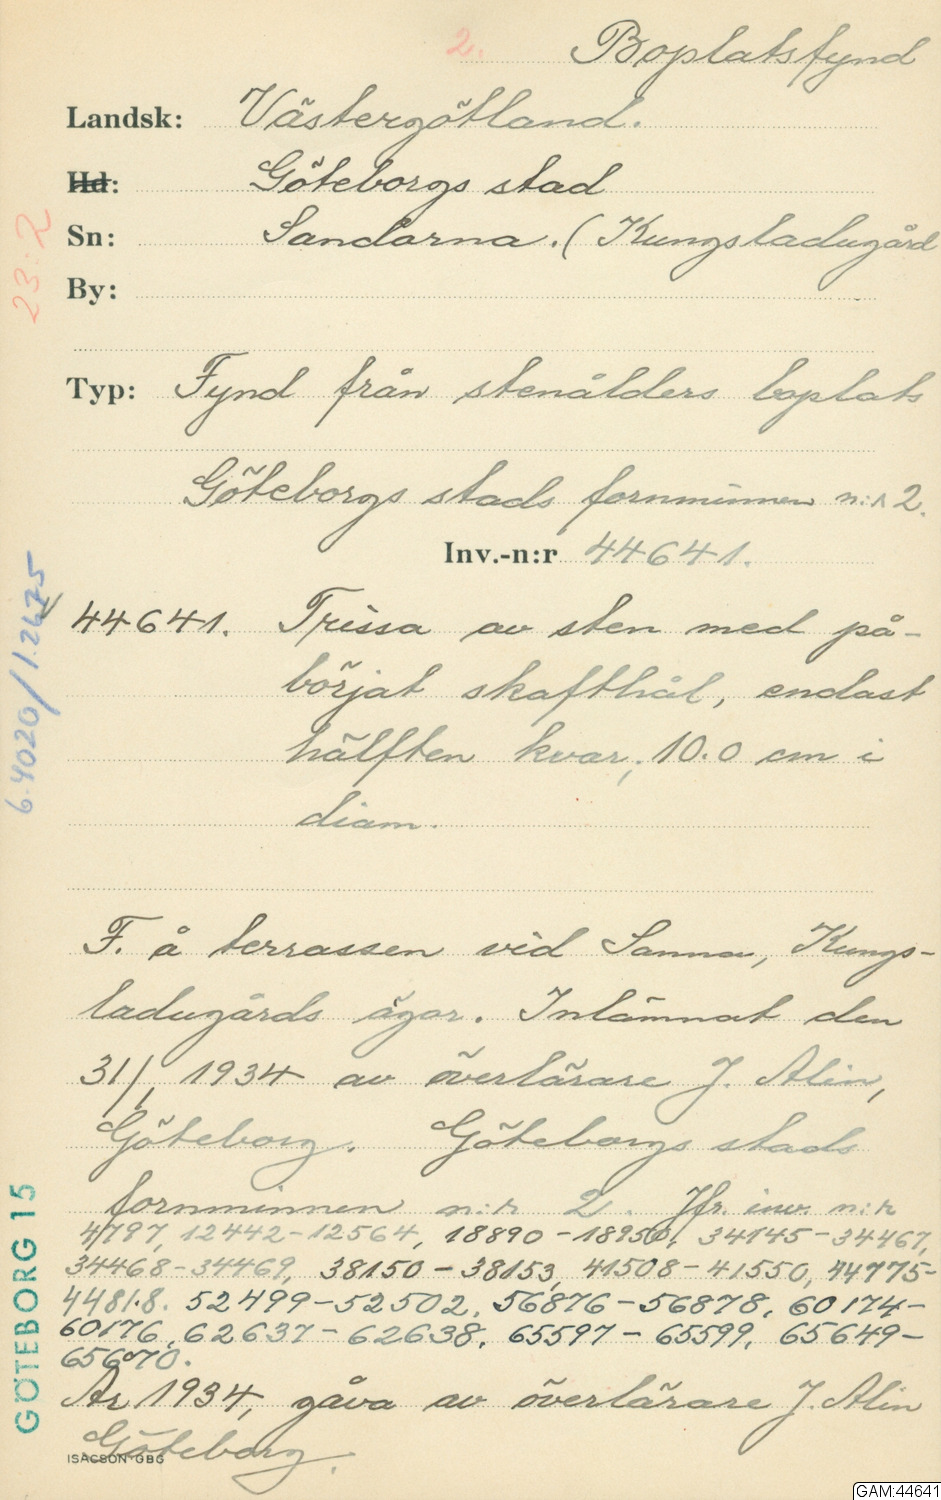 2.
Boplatsfynd
Landsk: Västergötland.
Hd: Göteborgs stad
Sn: Sandarna. (Kungsladugård
By:
23:2
Typ: Fynd från stenålders boplats
Göteborgs stads fornminnen n:r 2.
Inv.-n:r 44641.
44641. Trissa av sten med på-
börjat skafthål, endast
hälften kvar, 10.0 cm i
diam.
F. å terrassen vid Sanna, Kungs-
ladugårds ägor. Inlämnat den
31/1 1934 av överlärare J. Alin,
Göteborg. Göteborgs stads
fornminnen n:r 2. Jfr. inv. n:r
4797, 12442-12564, 18890-18950, 34145-34467,
34468-34469, 38150-38153, 41508-41550, 44775-
44818. 52499-52502. 56876-56878. 60174-
60176, 62637-62638. 65597-65599. 65649-
65670.
Ar 1934, gåva av överlärare J. Alin
Göteborg.
ISACSON GBG
GÖTEBORG 15
GAM:44641